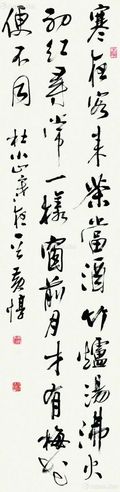 寒夜客来茶當酒竹爐湯沸火
初红尋常一樣窗前月才有梅花
便不同 杜小山寒夜 黄惇